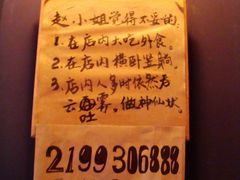 赵小姐觉得不妥的.
1.在店内大吃外食。
2.在店内横卧坐躺。
3.店内人多时依然吞
云吐雾。做神仙状
2199306888